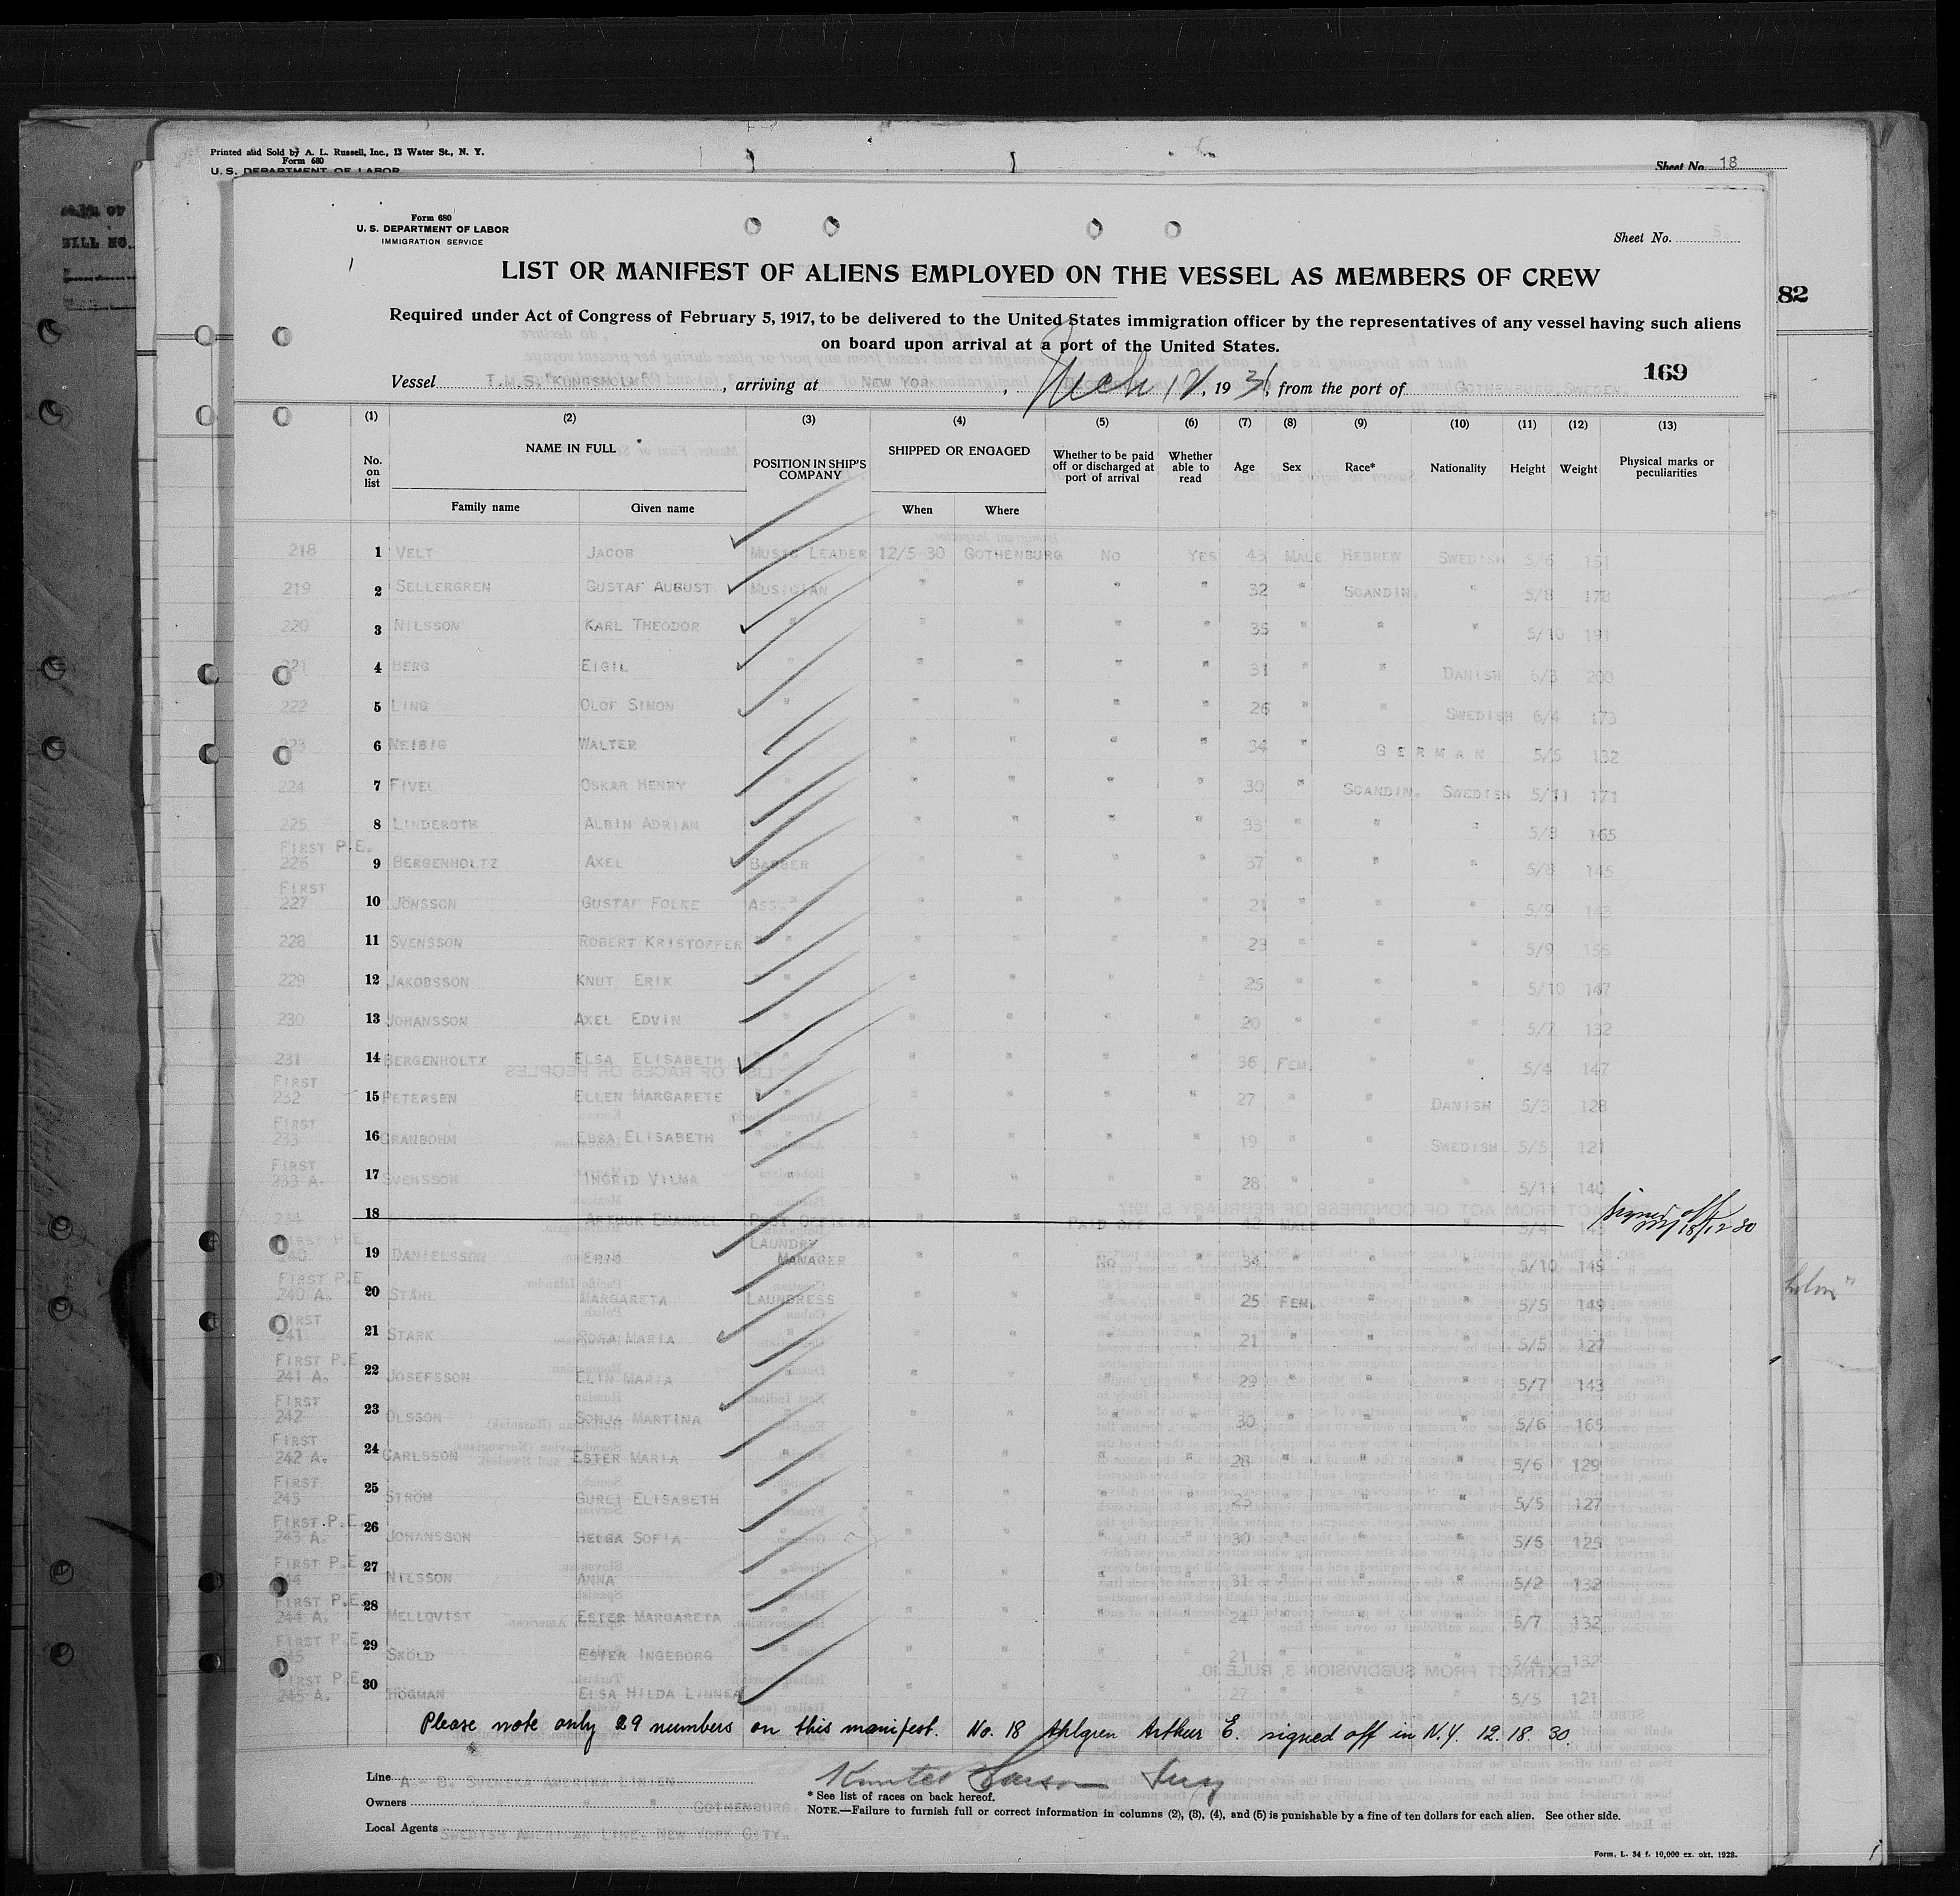 Printed and Sold by A. L. Russell, Inc., 13 Water St., N. Y.
Form 680
U. S. DEPARTMENT OF LABOR
Sheet No. 18
82
Form 680
U. S. DEPARTMENT OF LABOR
IMMIGRATION SERVICE
Sheet No. 5
LIST OR MANIFEST OF ALIENS EMPLOYED ON THE VESSEL AS MEMBERS OF CREW
Required under Act of Congress of February 5, 1917, to be delivered to the United States immigration officer by the representatives of any vessel having such aliens
on board upon arrival at a port of the United States.
169
Vessel T.M.S."KUNGSHOLM", arriving at NEW YORK, 1931, from the port of GOTHENBURG, SWEDEN.
(1) (2) (3) (4) (5) (6) (7) (8) (9) (10) (11) (12) (13)
No. on list NAME IN FULL POSITION IN SHIP'S COMPANY SHIPPED OR ENGAGED Whether to be paid off or discharged at port of arrival Whether able to read Age Sex Race* Nationality Height Weight Physical marks or peculiarities
Family name Given name When Where
218 1 VELT JACOB MUSIC LEADER 12/5-30 GOTHENBURG NO YES 43 MALE HEBREW SWEDISH 5/6 151
219 2 SELLERGREN GUSTAF AUGUST MUSICIAN " " " " 32 " SCANDIN. " 5/8 178
220 3 NILSSON KARL THEODOR " " " " " 35 " " " 5/10 191
221 4 BERG EIGIL " " " " " 31 " " DANISH 6/3 200
222 5 LING OLOF SIMON " " " " " 26 " " SWEDISH 6/4 173
223 6 NEIBIG WALTER " " " " " 34 " GERMAN 5/5 132
224 7 FIVEL OSKAR HENRY " " " " " 30 " SCANDIN. SWEDISH 5/11 171
225 8 LINDEROTH ALBIN ADRIAN " " " " " 33 " " " 5/8 165
FIRST P.E.
226 9 BERGENHOLTZ AXEL BARBER " " " " 37 " " " 5/8 145
FIRST
227 10 JONSSON GUSTAF FOLKE ASS." " " " " 21 " " " 5/9 143
228 11 SVENSSON ROBERT KRISTOFFER " " " " " " 23 " " " 5/9 155
229 12 JAKOBSSON KNUT ERIK " " " " " 25 " " " 5/10 147
230 13 JOHANSSON AXEL EDVIN " " " " " 20 " " " 5/7 132
231 14 BERGENHOLTZ ELSA ELISABETH " " " " " 36 FEM. " " 5/4 147
FIRST
232 15 PETERSEN ELLEN MARGARETE " " " " " " 27 " " DANISH 5/3 128
FIRST
233 16 GRANBOHM EBBA ELISABETH " " " " " " 19 " " SWEDISH 5/5 121
FIRST
233 A. 17 SVENSSON INGRID VILMA " " " " " 28 " " " 5/11 140
234 18 ARTHUR EMANUEL POST OFFICIAL " " PAID OFF " 42 MALE " " 5/4 145 signed off NY 18/12 30
FIRST P.E.
240 19 DANIELSSON ERIC LAUNDRY MANAGER " " NO " 34 " " " 5/10 145
FIRST P.E.
240 A. 20 STAHL MARGARETA LAUNDRESS " " " " 25 FEM. " " 5/5 149
FIRST
241 21 STARK ROSA MARIA " " " " " 21 " " " 5/5 127
FIRST P.E.
241 A. 22 JOSEFSSON ELIN MARIA " " " " " 29 " " " 5/7 143
FIRST
242 23 OLSSON SONJA MARTINA " " " " " 30 " " " 5/6 165
FIRST
242 A. 24 CARLSSON ESTER MARIA " " " " " 28 " " " 5/6 129
FIRST
243 25 STROM GURLI ELISABETH " " " " " 23 " " " 5/5 127
FIRST P.E.
243 A. 26 JOHANSSON HELGA SOFIA " " " " " 30 " " " 5/6 125
FIRST P.E.
244 27 NILSSON ANNA " " " " " 31 " " " 5/2 132
FIRST P.E.
244 A. 28 MELLQVIST ESTER MARGARETA " " " " " 24 " " " 5/7 132
FIRST P.E.
245 29 SKÖLD ESTER INGEBORG " " " " " 21 " " " 5/4 132
FIRST P.E.
245 A. 30 HÖGMAN ELSA HILDA LINNEA " " " " " 27 " " " 5/5 121
Please note only 29 numbers on this manifest. No. 18 Ahlgren Arthur E. signed off in N.Y. 12.18.30.
Line A.-B. SVENSKA AMERIKA LINIEN
* See list of races on back hereof.
Owners " " " " , GOTHENBURG.
NOTE.—Failure to furnish full or correct information in columns (2), (3), (4), and (5) is punishable by a fine of ten dollars for each alien. See other side.
Local Agents SWEDISH AMERICAN LINE. NEW YORK CITY.
Form. L. 34 f. 10,000 ex. okt. 1928.